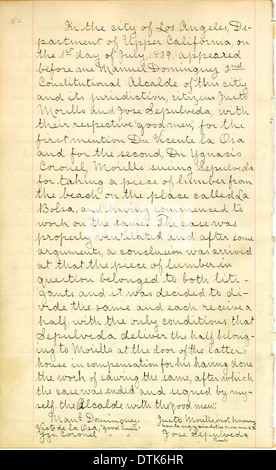 In the city of Los Angeles, De-
partment of Upper California, on
the 1st day of July, 1839, appeared
before me Manuel Dominguez 2nd
Constitutional Alcalde of this city
and its jurisdiction, citizens Justo
Morillo and Jose Sepulveda, with
their respective "good men," for the
first mention Dn Vicente la Osa
and for the second, Dn Ygnacio
Coronel, Morillo sueing Sepulveda
for taking a piece of lumber from
the beach on the place called La
Bolsa, and having commenced to
work on the same. The case was
properly ventilated and after some
arguments, a conclusion was arrived
at that the piece of lumber in
question belonged to both liti-
gants and it was decided to di-
vide the same and each receive a
half with the only conditions that
Sepulveda deliver the half belong-
ing to Morillo at the door of the latter's
house in compensation for his having done
the work of sawing the same, after which
the case was ended and signed by my-
self, the Alcalde with the good men.
Manl Dominguez. Justo Morillo, not knowing
Victe de la Osa, "good man"
Ygo. Coronel " " Jose Sepulveda
a alamy stock photo
DTK6HR
www.alamy.com